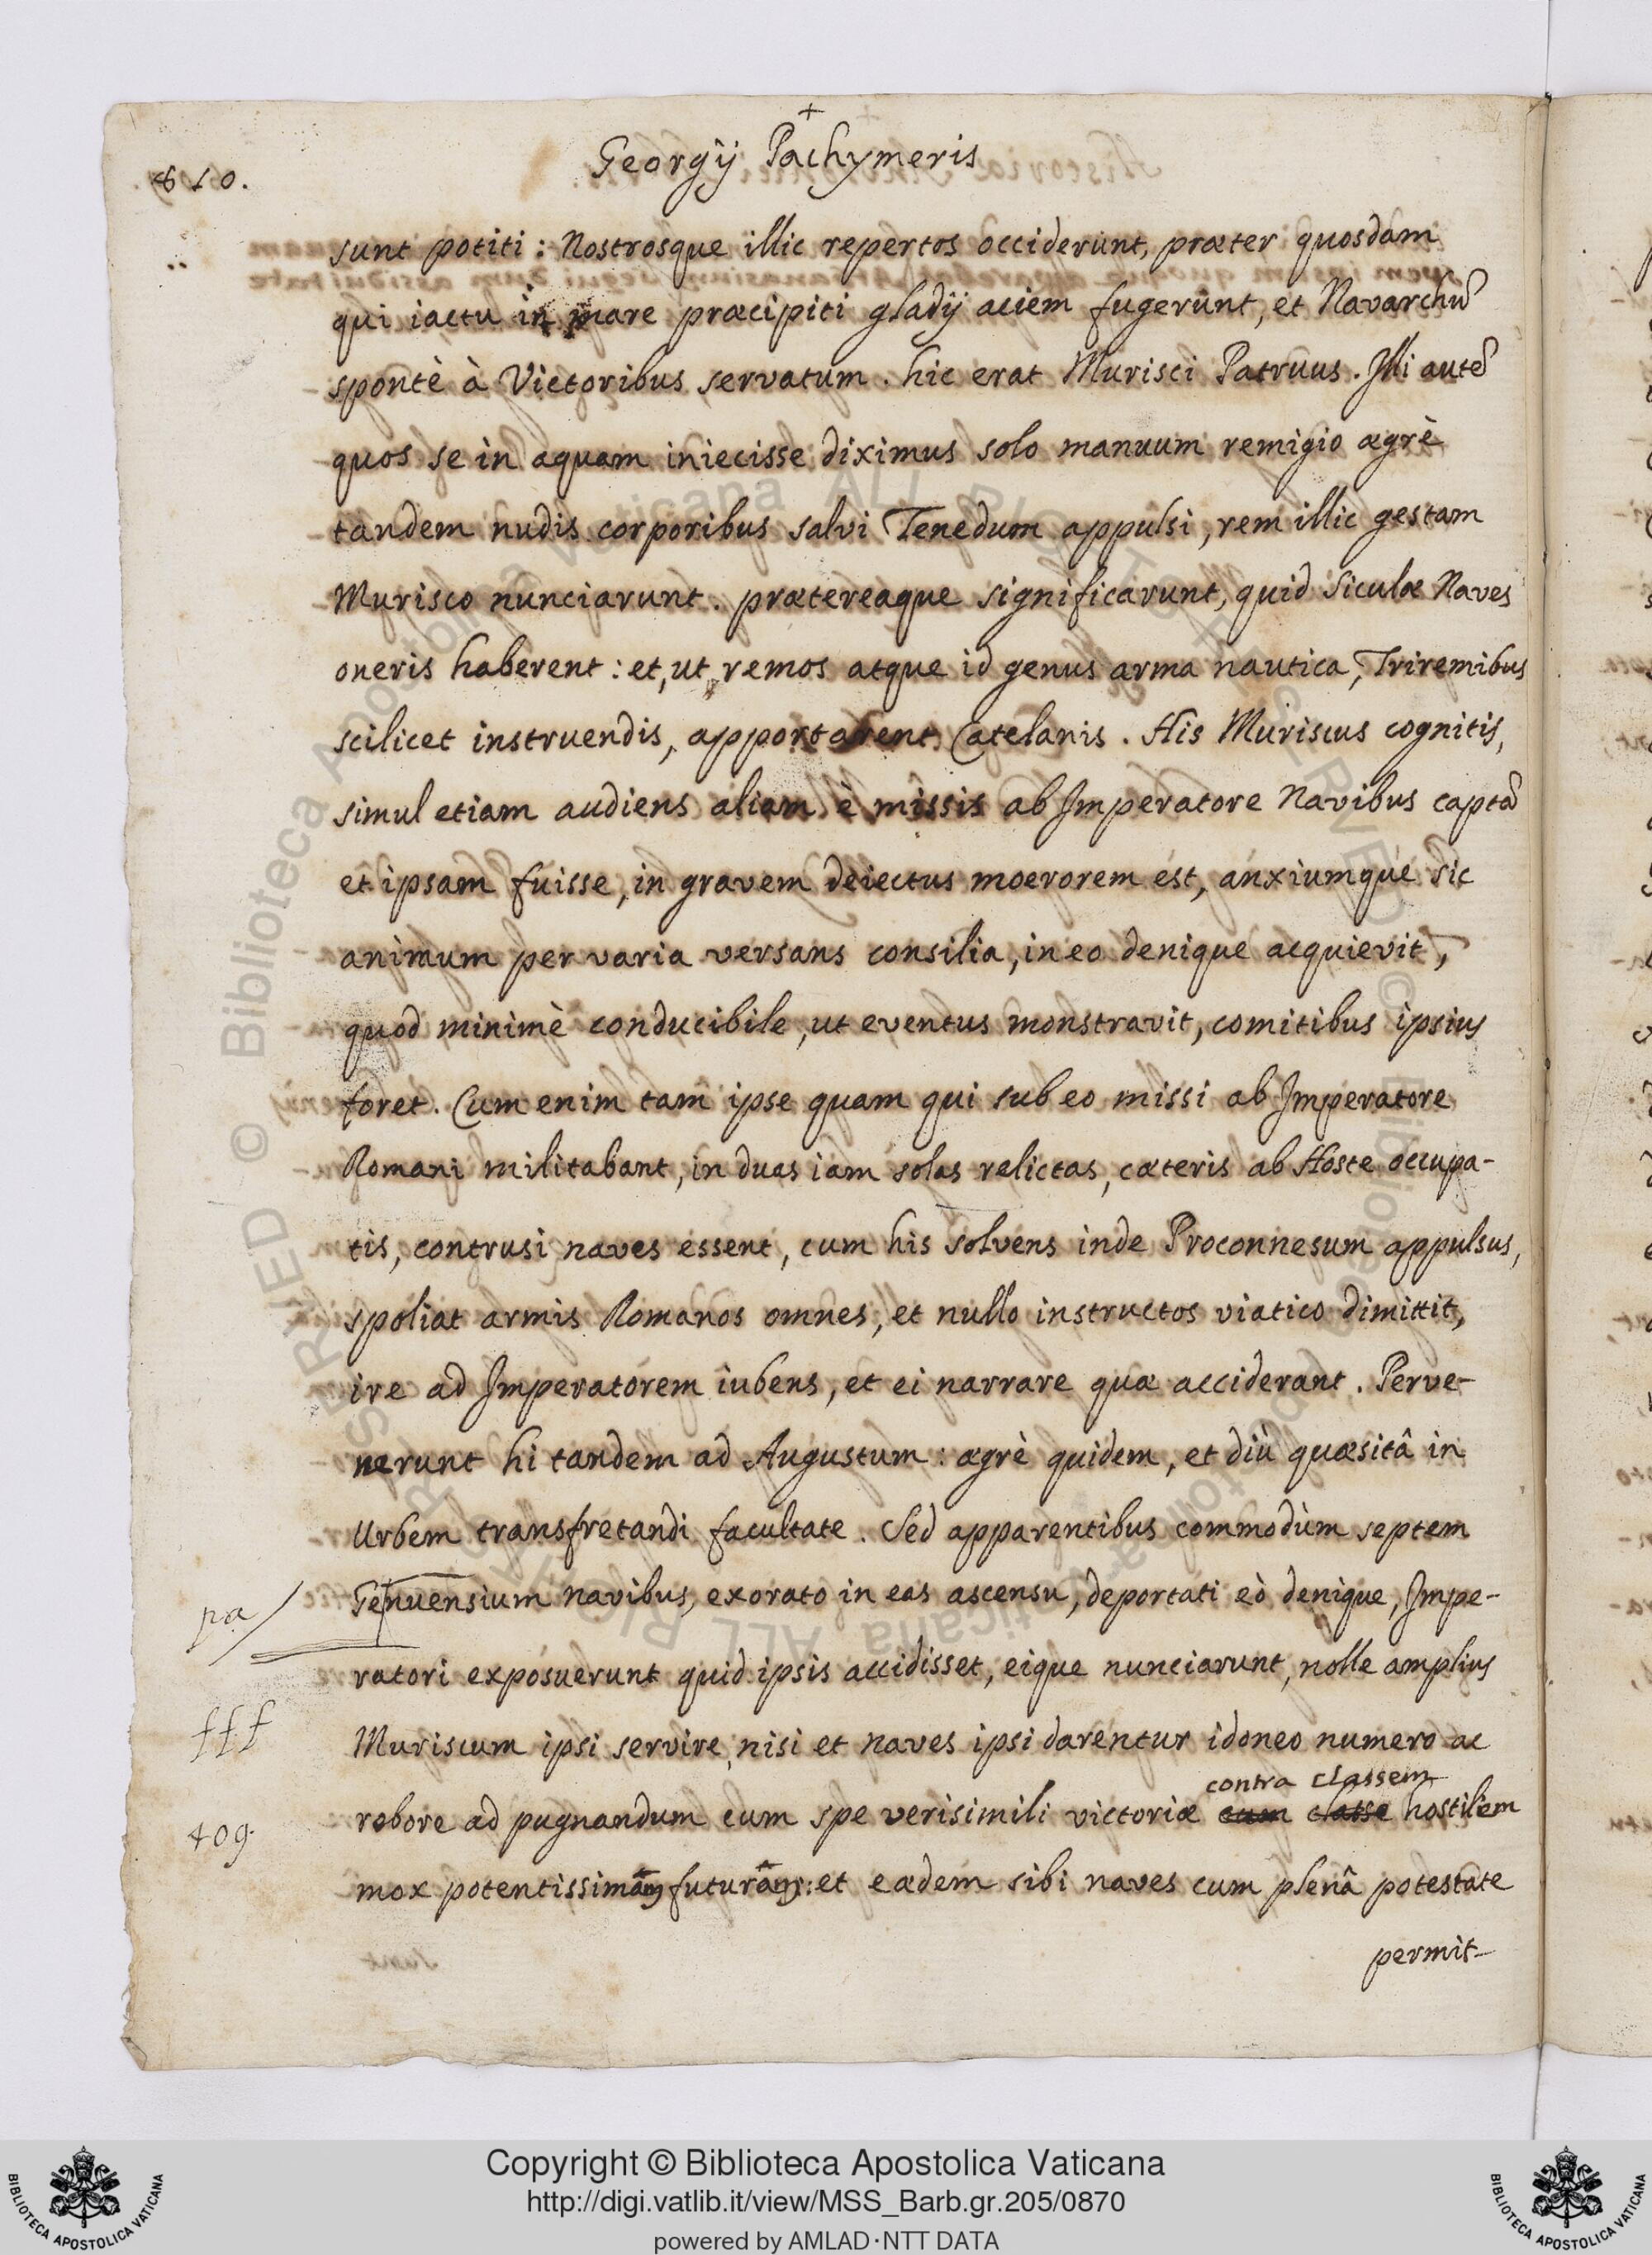 +
Georgij Pachymeris
810.
sunt potiti : Nostrosque illic repertos occiderunt, præter quosdam
qui iactu in mare præcipiti gladij aciem fugerunt, et Navarchũ
spontè à Victoribus servatum. hic erat Murisci Patruus. Illi autẽ
quos se in aquam iniecisse diximus solo manuum remigio ægrè
tandem nudis corporibus salvi Tenedum appulsi, rem illic gestam
Murisco nunciarunt. prætereaque significarunt, quid Siculæ Naves
oneris haberent : et, ut remos atque id genus arma nautica, Triremibus
scilicet instruendis, apportarent Catelanis. His Muriscus cognitis,
simul etiam audiens aliam è missis ab Imperatore Navibus captã
et ipsam fuisse, in gravem deiectus moerorem est, anxiumque sic
animum per varia versans consilia, in eo denique acquievit,
quod minimè conducibile, ut eventus monstravit, comitibus ipsius
foret. Cum enim tam ipse quam qui sub eo missi ab Imperatore
Romani militabant, in duas iam solas relictas, cæteris ab Hoste occupa-
tis, contrusi naves essent, cum his solvens inde Proconnesum appulsus,
spoliat armis Romanos omnes, et nullo instructos viatico dimittit,
ire ad Imperatorem iubens, et ei narrare quæ acciderant. Perve-
nerunt hi tandem ad Augustum : ægrè quidem, et diù quæsitâ in
Urbem transfretandi facultate. Sed apparentibus commodùm septem
pa/ Genuensium navibus, exorato in eas ascensu, deportati eò denique, Impe-
ratori exposuerunt quid ipsis accidisset, eique nunciarunt, nolle amplius
fff Muriscum ipsi servire, nisi et naves ipsi darentur idoneo numero ac
contra classem
409. robore ad pugnandum cum spe verisimili victoriæ cum classe hostilem
mox potentissimam futuram : et eædem sibi naves cum plenâ potestate
permit-
Copyright © Biblioteca Apostolica Vaticana
http://digi.vatlib.it/view/MSS_Barb.gr.205/0870
powered by AMLAD·NTT DATA
BIBLIOTECA APOSTOLICA VATICANA
BIBLIOTECA APOSTOLICA VATICANA